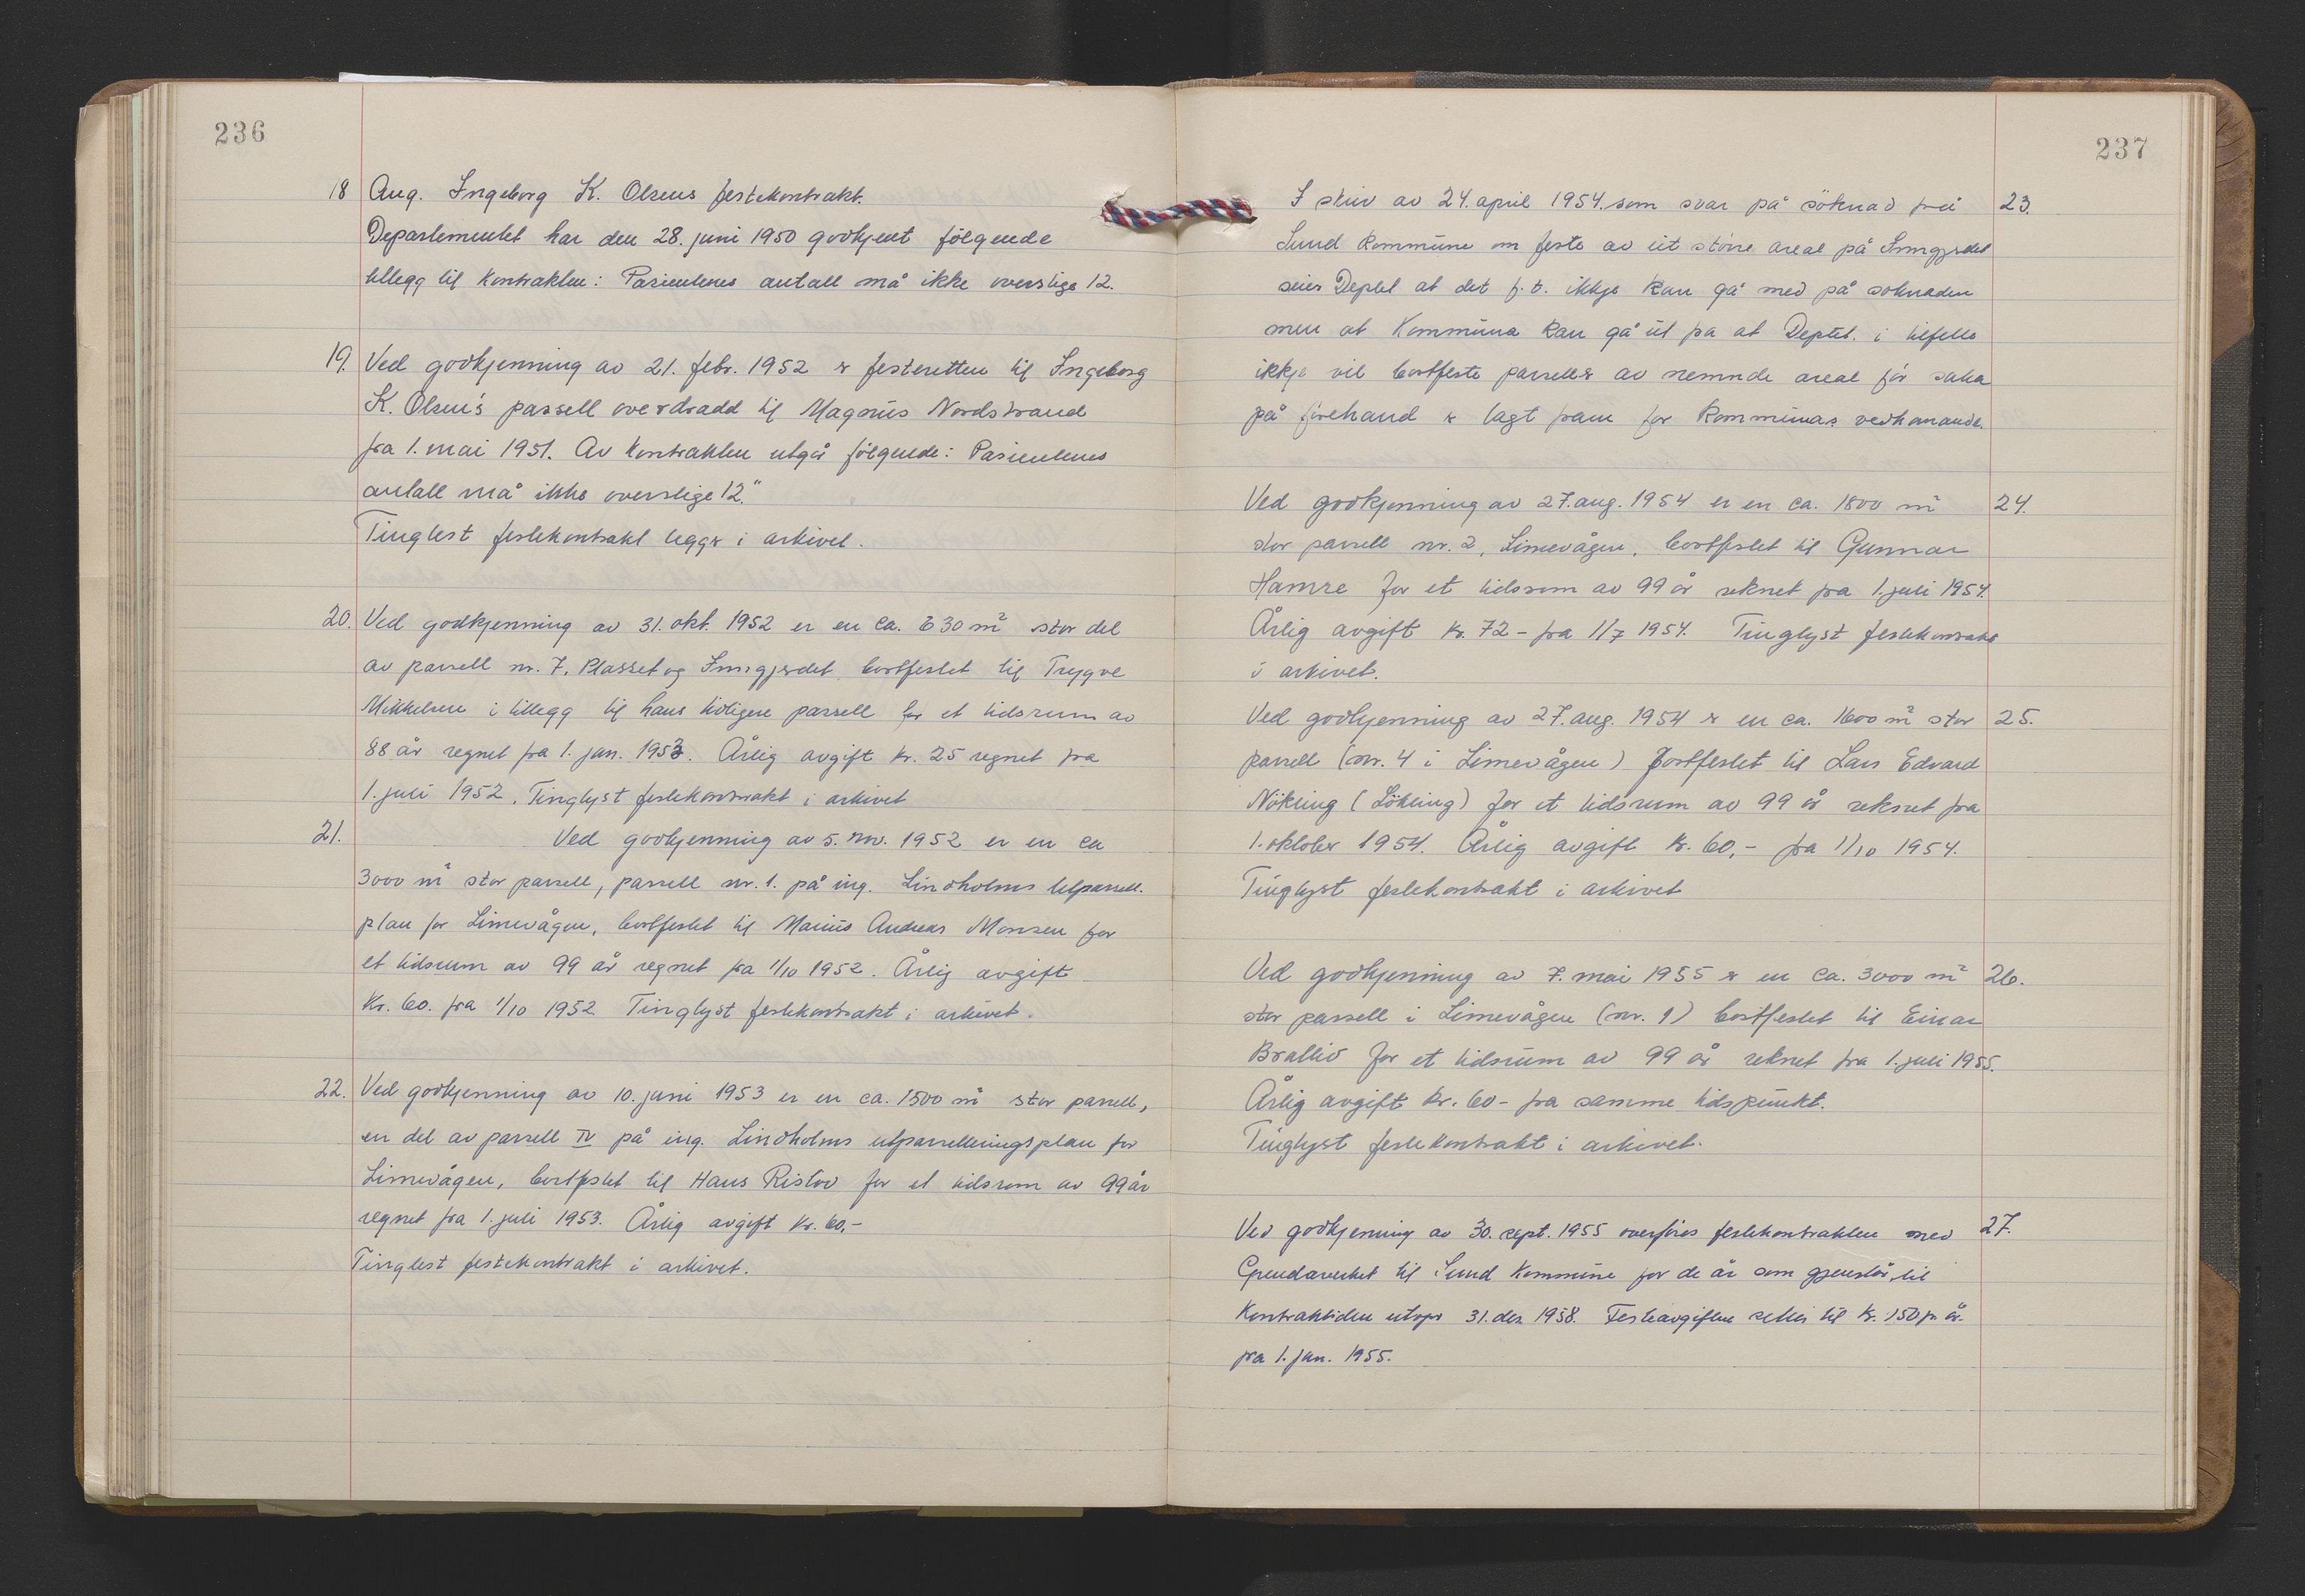 236
18 Ang. Ingeborg K. Olsens festekontrakt.
Departementet har den 28. juni 1950 godkjent følgende
tillegg til kontrakten: Pasientenes antall må ikke overstige 12.
19. Ved godkjenning av 21. febr. 1952 er festeretten til Ingeborg
K. Olsen's parsell overdradd til Magnus Nordstrand
fra 1. mai 1951. Av kontrakten utgår følgende: Pasientenes
antall må ikke overstige 12."
Tinglest festekontrakt legges i arkivet.
20. Ved godkjenning av 31. okt. 1952 er en ca. 630 m² stor del
av parsell nr. 7, Plasset og Inngjerdet bortfestet til Trygve
Mikkelsen i tillegg til hans tidligere parsell for et tidsrum av
88 år regnet fra 1. jan. 1953. Årlig avgift kr. 25 regnet fra
1. juli 1952. Tinglyst festekontrakt i arkivet
21. Ved godkjenning av 5. nov. 1952 er en ca
3000 m² stor parsell, parsell nr. 1. på ing. Lindholms utparsell.
plan for Limevågen, bortfestet til Marius Andreas Monsen for
et tidsrum av 99 år regnet fra 1/10 1952. Årlig avgift
Kr. 60. fra 1/10 1952 Tinglyst festekontrakt i arkivet.
22. Ved godkjenning av 10. juni 1953 er en ca. 1500 m² stor parsell,
en del av parsell IV på ing. Lindholms utparselleringsplan for
Limevågen, bortfestet til Hans Ristov for et tidsrom av 99 år
regnet fra 1. juli 1953. Årlig avgift kr. 60,-
Tinglest festekontrakt i arkivet.
237
I skriv av 24. april 1954. som svar på söknad frå 23.
Sund kommune om feste av eit större areal på Inngjerdet
seier Deptet at det f. t. ikkje kan gå med på soknaden
men at kommuna kan gå ut pa at Deptet. i tilfelle
ikkje vil bortfeste parseller av nemnde areal för saka
på förehand er lagt fram for kommunas vedkomande.
Ved godkjenning av 27. aug. 1954 er en ca. 1800 m² 24.
stor parsell nr. 2, Limevågen, bortfestet til Gunnar
Hamre for et tidsrom av 99 år reknet fra 1. juli 1954.
Årlig avgift kr. 72 - fra 1/7 1954. Tinglyst festekontrakt
i arkivet.
Ved godkjenning av 27. aug. 1954 er en ca. 1600 m² stor 25.
parsell (nr. 4 i Limevågen) bortfestet til Lars Edvard
Nökling (Lökling) for et tidsrum av 99 år reknet fra
1. oktober 1954. Årlig avgift kr. 60,- fra 1/10 1954.
Tinglyst festekontrakt i arkivet
Ved godkjenning av 7. mai 1955 er en ca. 3000 m² 26.
stor parsell i Limevågen (nr. 1) bortfestet til Einar
Brattlid for et tidsrum av 99 år reknet fra 1. juli 1955.
Årlig avgift kr. 60- fra samme tidspunkt.
Tinglyst festekontrakt i arkivet.
Ved godkjenning av 30. sept. 1955 overføres festekontrakten med 27.
til Sund kommune for de år som gjenstår til
Kontrakttiden utløper 31. des. 1958. Festeavgiften settes til kr. 150 pr. år.
fra 1. jan. 1955.